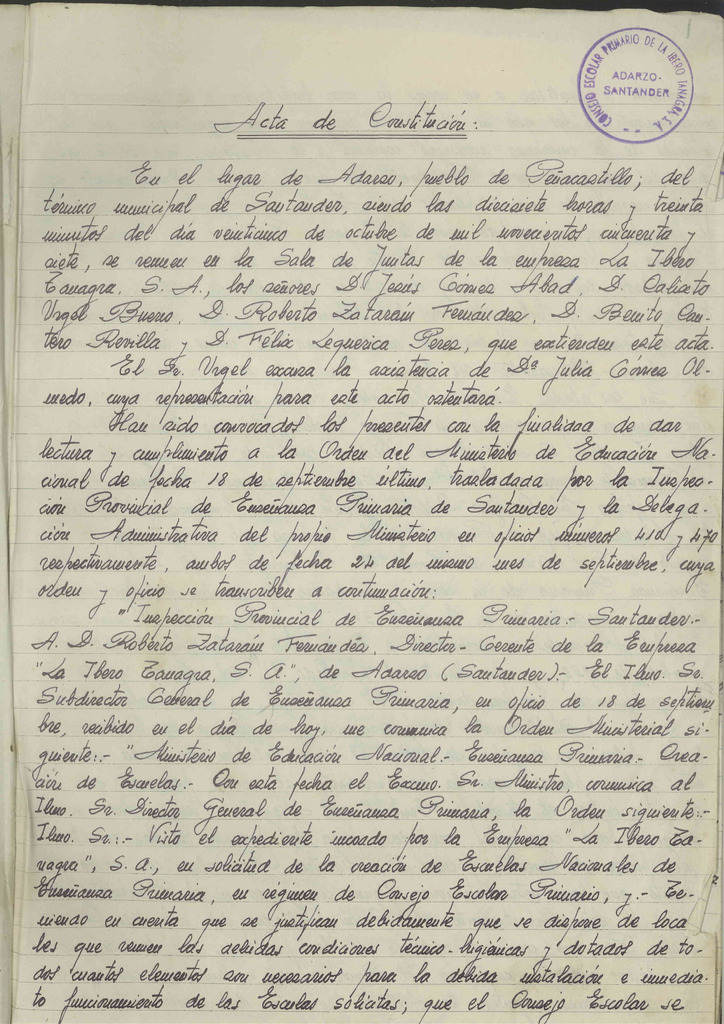 CONSEJO ESCOLAR PRIMARIO DE LA IBERO TANAGRA, S.A.
ADARZO-
SANTANDER
Acta de Constitución:
En el lugar de Adarzo, pueblo de Peñacastillo; del
término municipal de Santander, siendo las diecisiete horas y treinta
minutos del día veinticinco de octubre de mil novecientos cincuenta y
siete, se reunen en la Sala de Juntas de la empresa La Ibero
Tanagra, S. A., los señores D. Jesús Gómez Abad, D. Calixto
Urgel Bueno, D. Roberto Zataraín Fernández, D. Benito Can-
tero Revilla y D. Félix Lequerica Perez, que extienden este acta.
El Sr. Urgel excusa la asistencia de Dª Julia Gómez Ol-
medo, cuya representación para este acto ostentará.
Han sido convocados los presentes con la finalidad de dar
lectura y cumplimiento a la Orden del Ministerio de Educación Na-
cional de fecha 18 de septiembre último, trasladada por la Inspec-
ción Provincial de Enseñanza Primaria de Santander y la Delega-
ción Administrativa del propio Ministerio en oficios números 410 y 470
respectivamente, ambos de fecha 24 del mismo mes de septiembre, cuya
orden y oficio se transcriben a continuación:
"Inspección Provincial de Enseñanza Primaria.- Santander.-
A. D. Roberto Zataraín Fernández, Director-Gerente de la Empresa
"La Ibero Tanagra, S. A.", de Adarzo (Santander).- El Ilmo. Sr.
Subdirector General de Enseñanza Primaria, en oficio de 18 de septiem-
bre, recibido en el día de hoy, me comunica la Orden Ministerial si-
guiente:.- "Ministerio de Educación Nacional.- Enseñanza Primaria.- Crea-
ción de Escuelas.- Con esta fecha el Excmo. Sr. Ministro, comunica al
Ilmo. Sr. Director General de Enseñanza Primaria, la Orden siguiente:-
Ilmo. Sr.:.- Visto el expediente incoado por la Empresa "La Ibero Ta-
nagra", S. A., en solicitud de la creación de Escuelas Nacionales de
Enseñanza Primaria, en régimen de Consejo Escolar Primario, y.- Te-
niendo en cuenta que se justifican debidamente que se dispone de loca-
les que reunen las debidas condiciones técnico-higiénicas y dotados de to-
dos cuantos elementos son necesarios para la debida instalación e inmedia-
to funcionamiento de las Escuelas solicitas; que el Consejo Escolar se